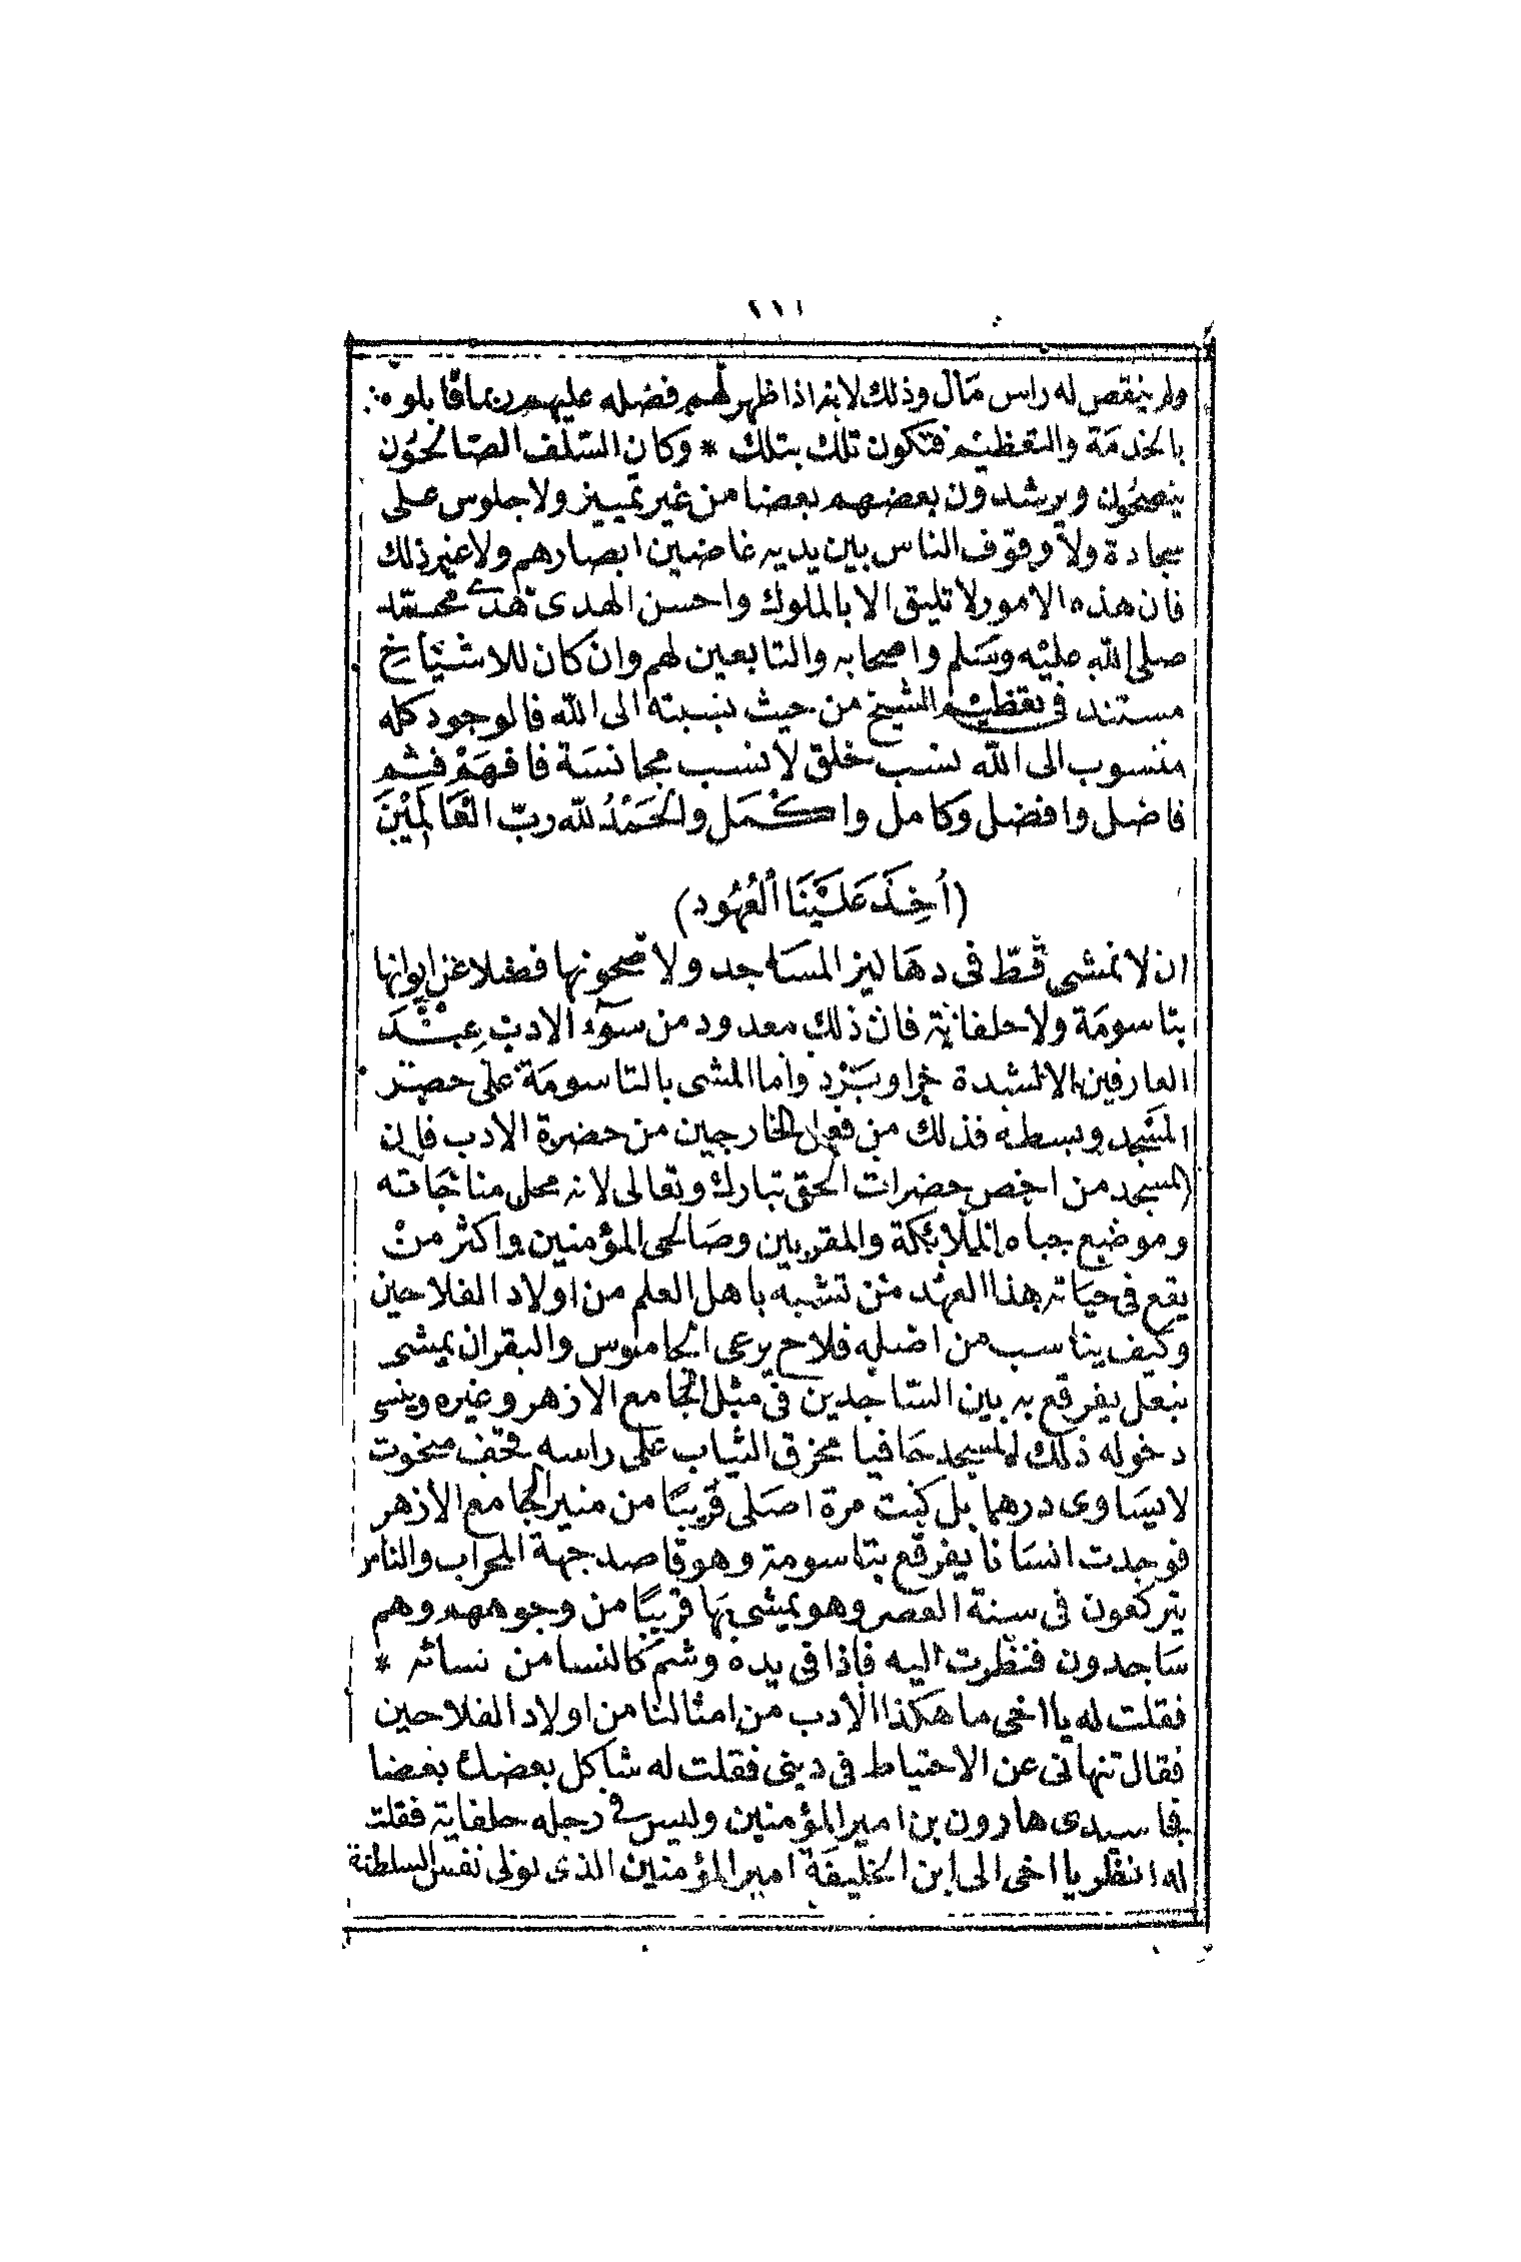 ولم ينقص له راس مال وذلك لانه اذا ظهر لهم فضله عليهم ربما قابلوه
بالخدمة والتعظيم فتكون تلك بتلك * وكان السلف الصالحون
ينصحون ويرشدون بعضهم بعضا من غير تمييز ولا جلوس على
سجادة ولا وقوف الناس بين يديه غاضين ابصارهم ولا غير ذلك
فان هذه الامور لا تليق الا بالملوك واحسن الهدى هدى محمد
صلى الله عليه وسلم واصحابه والتابعين لهم وان كان للاشياخ
مستند فى تعظيم الشيخ من حيث نسبته الى الله فالوجود كله
منسوب الى الله نسب خلق لا نسب مجانسة فافهم فثم
فاضل وافضل وكامل واكمل والحمد لله رب العالمين
(أُخِذَ عَلَيْنَا العُهُود)
ان لا نمشى قط فى دهاليز المساجد ولا صحونها فضلا عن ايوانها
بتاسومة ولا حلفاية فان ذلك معدود من سوء الادب عند
العارفين الا لشدة حر او برد واما المشى بالتاسومة على حصير
المسجد وبسطه فذلك من فعل الخارجين من حضرة الادب فان
المسجد من اخص حضرات الحق تبارك وتعالى لانه محل مناجاته
وموضع جباه الملائكة والمقربين وصالحى المؤمنين واكثر من
يقع فى خيانة هذا العهد من تشبه باهل العلم من اولاد الفلاحين
وكيف يناسب من اصله فلاح يرعى الجاموس والبقر ان يمشى
بنعل يفرقع به بين الساجدين فى مثل الجامع الازهر وغيره وينسى
دخوله ذلك المسجد حافيا مخزق الثياب على راسه مخوت
لا يساوى درهما بل كنت مرة اصلى قريبًا من منبر الجامع الازهر
فوجدت انسانا يفرقع بتاسومة وهو قاصد جهة المحراب والناس
يتركعون فى سنة العصر وهو يمشى بها قريبًا من وجوههم وهم
ساجدون فنظرت اليه فاذا فى يده وشم كالنسا من نسائه *
فقلت له يا اخى ما هكذا الادب من امثالنا من اولاد الفلاحين
فقال تنهانى عن الاحتياط فى دينى فقلت له شاكل بعضك بعضا
فجا سيدى هارون بن امير المؤمنين وليس فى رجله حلفاية فقلت
له انظر يا اخى الى ابن الخليفة امير المؤمنين الذى يولى نفس السلطنة